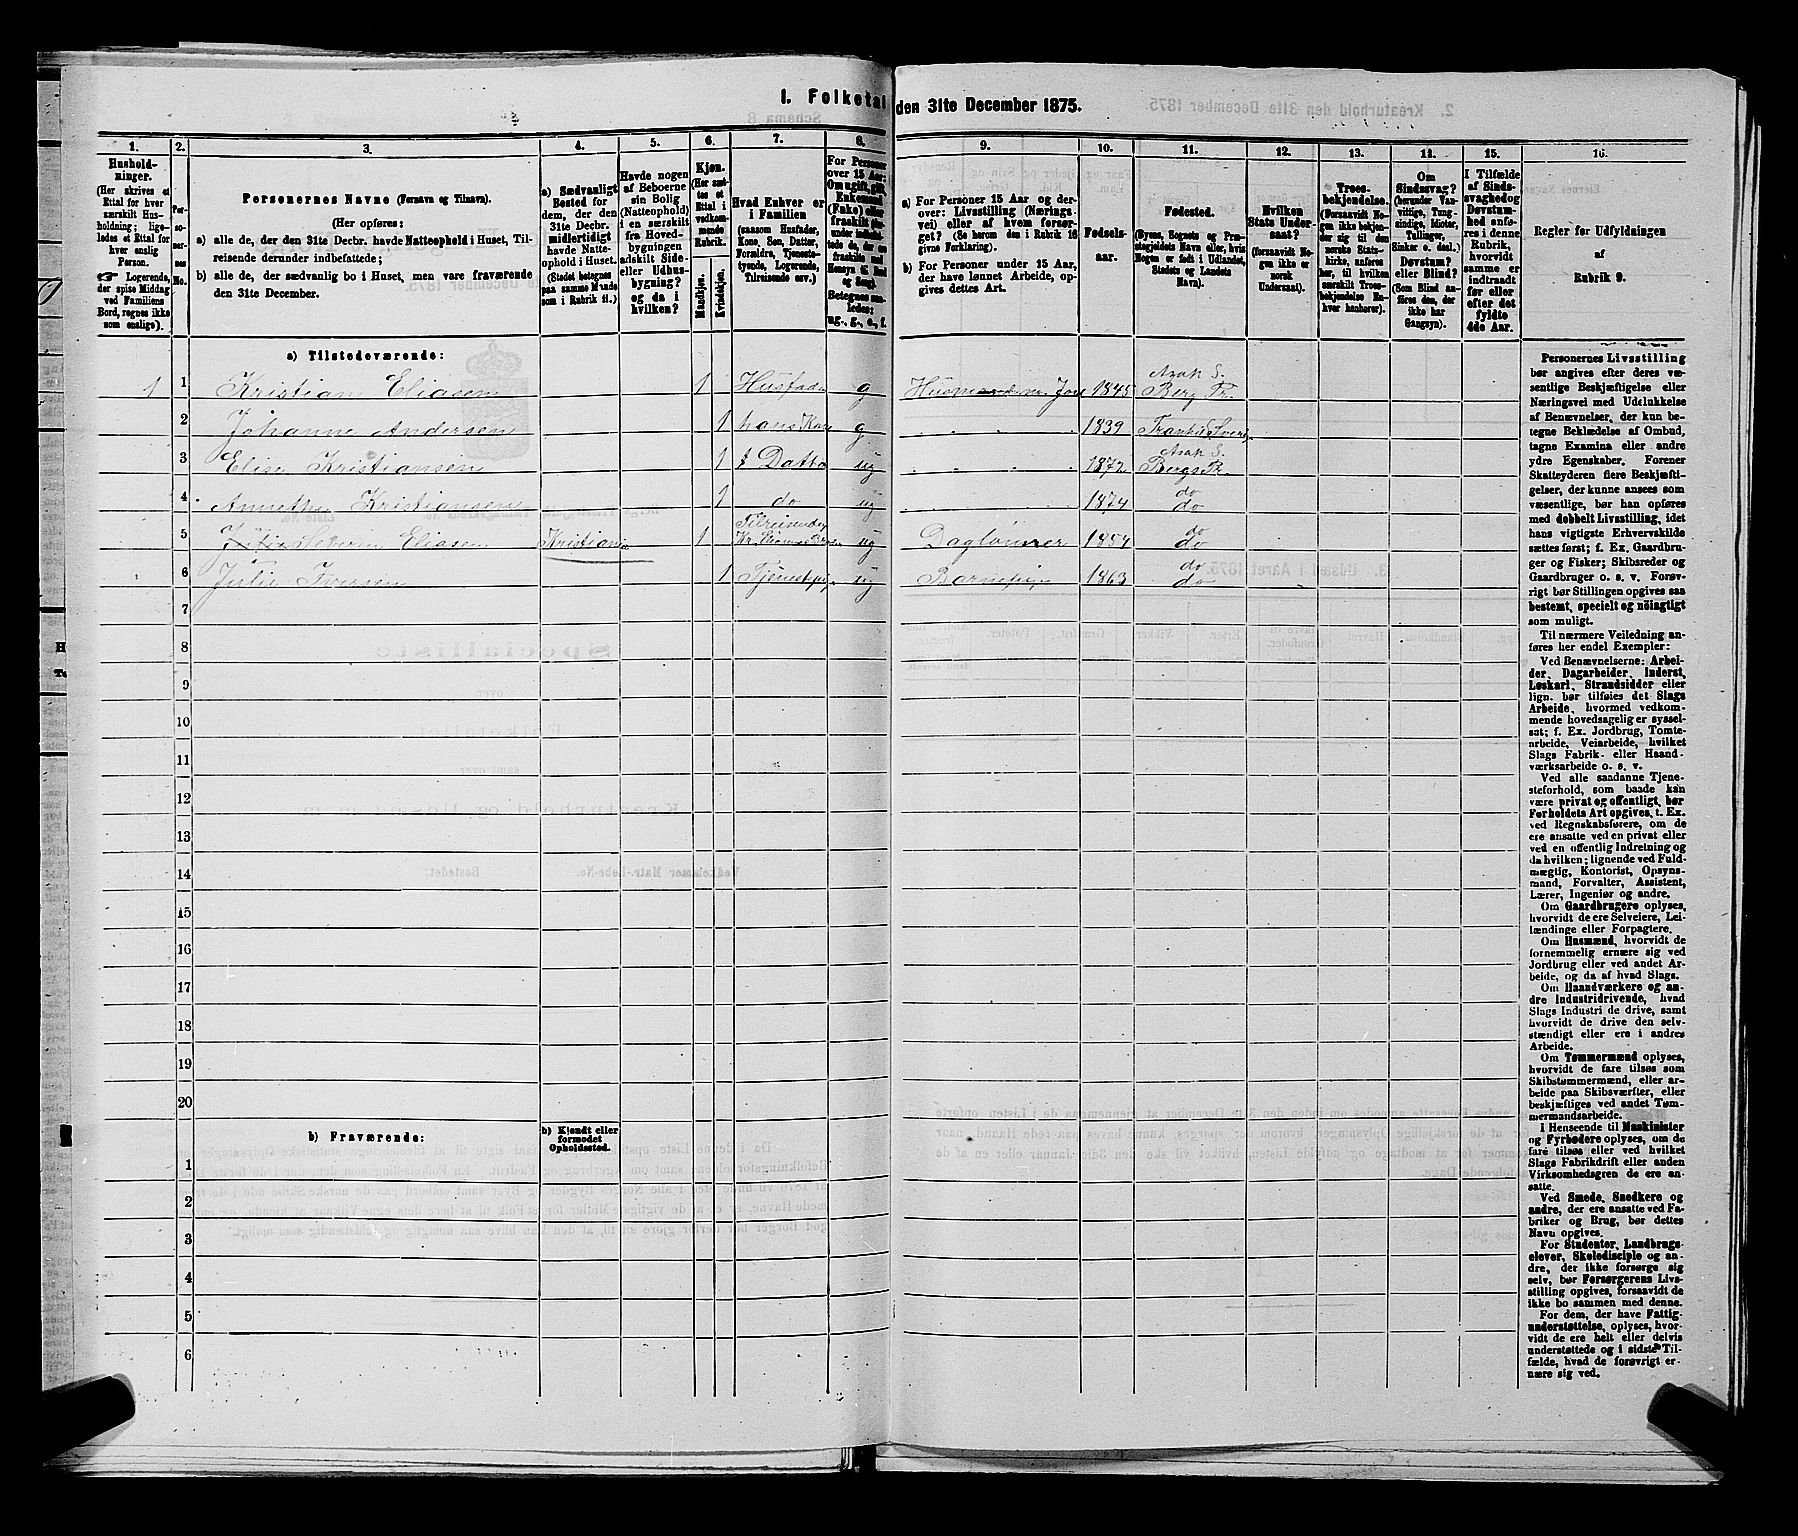 1. Folketal den 31te December 1875.
1. 2. 3. 4. 5. 6. 7. 8. 9. 10. 11. 12. 13. 14. 15. 16.
Hushold-
ninger.
(Her skrives et
Ettal for hver
særskilt Hus-
holdning; lige-
ledes et Ettal for
hver enslig
Person.
☞ Logerende,
der spise Middag
ved Familiens
Bord, regnes ikke
som enslige).
Per-
so-
ner-
nes
No.
Personernes Navne (Fornavn og Tilnavn).
(Her opføres:
a) alle de, der den 31te Decbr. havde Natteophold i Huset, Til-
reisende derunder indbefattede;
b) alle de, der sædvanlig bo i Huset, men vare fraværende
den 31te December.
a) Sædvanligt
Bosted for
dem, der den
31te Decbr.
midlertidigt
havde Natte-
ophold i Huset.
(Stedet betegnes
paa samme Maade
som i Rubrik 11.)
Havde nogen
af Beboerne
sin Bolig
(Natteophold)
i en særskilt
fra Hoved-
bygningen
adskilt Side-
eller Udhus-
bygning?
og da i
hvilken?
Kjøn.
(Her sæt-
tes et
Ettal i
vedkom-
mende
Rubrik.
Mandkjøn.
Kvindekjøn.
Hvad Enhver er
i Familien
(saasom Husfader,
Kone, Søn, Datter,
Forældre, Tjeneste-
tyende, Logerende,
Tilreisende osv.)
For Personer
over 15 Aar:
Om ugift, gift,
Enkemand
(Enke) eller
fraskilt
Betegnes saa-
ledes:
ug., g., e., f.
a) For Personer 15 Aar og der-
over: Livsstilling (Nærings-
vei) eller af hvem forsør-
get? (Se herom den i Rubrik 16
givne Forklaring).
b) For Personer under 15 Aar,
der have lønnet Arbeide, op-
gives dettes Art.
Fødsels-
aar.
Fødested.
(Byens, Sognets og Præ-
stegjeldets Navn eller, hvis
Nogen er født i Udlandet,
Stedets og Landets
Navn).
Hvilken
Stats Under-
saat?
(forsaavidt No-
gen ikke er
norsk
Undersaat).
Troes-
bekjendelse.
(Forsaavidt No-
gen ikke bekjen-
der sig til den
norske Stats-
kirke, anføres
her, til hvilken
særskilt Troes-
bekjendelse En-
hver henhører).
Om
Sindssvag?
(herunder Van-
vittige, Tung-
sindige, Idioter,
Tullinger,
Sinker o. desl.)
Døvstum?
eller Blind?
(Som Blind an-
føres den, der
ikke har
Gangsyn).
I Tilfælde
af Sinds-
svaghed og
Døvstum-
hed anfø-
res i denne
Rubrik,
hvorvidt
samme er
indtraadt
før eller
efter det
fyldte
4de Aar.
Regler for Udfyldningen
af
Rubrik 9.
a) Tilstedeværende:
1 1 Kristian Eliasen 1 Husfader g 1845 Asak S. Berg Pr.
2 Johanne Andersen 1 hans Kone g 1839
3 Elise Kristiansen 1 Datter ug 1872 Asak S. Bergs Pr.
4 Kristiansen 1 do ug 1874 do do
5 Eliasen Kristiania 1 Tilreisende ug 1854 do do
6 Julie Iversen 1 ug Barnepige 1863 do do
7
8
9
10
11
12
13
14
15
16
17
18
19
20
b) Fraværende:
b) Kjendt eller
formodet
Opholdssted.
1
2
3
4
5
6
Personernes Livsstilling
bør angives efter deres væ-
sentlige Beskjæftigelse eller
Næringsvei med Udelukkelse
af Benævnelser, der kun be-
tegne Beklædelse af Ombud,
tagne Examina eller andre
ydre Egenskaber. Forener
Skatteyderen flere Beskjæfti-
gelser, der kunne ansees som
væsentlige, bør han opføres
med dobbelt Livsstilling, idet
hans vigtigste Erhvervskilde
sættes først; f. Ex. Gaardbru-
ger og Fisker; Skibsreder og
Gaardbruger o. s. v. Forøv-
rigt bør Stillingen opgives saa
bestemt, specielt og nöiagtigt
som muligt.
Til nærmere Veiledning an-
føres her endel Exempler:
Ved Benævnelserne: Arbei-
der, Dagarbeider, Inderst,
Løskarl, Strandsidder eller
lign. bør tilføies det Slags
Arbeide, hvormed vedkom-
mende hovedsagelig er syssel-
sat; f. Ex. Jordbrug, Tomte-
arbeide, Veiarbeide, hvilket
Slags Fabrik- eller Haand-
værksarbeide o. s. v.
Ved alle saadanne Tjene-
steforhold, som baade kan
være privat og offentligt, bør
Forholdets Art opgives, t. Ex.
ved Regnskabsførere, om de
ere ansatte ved en privat eller
ved en offentlig Indretning og
da hvilken; lignende ved Fuld-
mægtig, Kontorist, Opsyns-
mand, Forvalter, Assistent,
Lærer, Ingeniør og andre.
Om Gaardbrugere oplyses,
hvorvidt de ere Selveiere, Lei-
lændinge eller Forpagtere.
Om Husmænd, hvorvidt de
fornemmelig ernære sig ved
Jordbrug eller ved andet Ar-
beide, og da af hvad Slags.
Om Haandværkere og an-
dre Industridrivende, hvad
Slags Industri de drive, samt
hvorvidt de drive den selv-
stændigt eller ere i andres
Arbeide.
Om Tømmermænd oplyses,
hvorvidt de fare tilsøs som
Skibstømmermænd, eller ar-
beide paa Skibsværfter, eller
beskjæftiges ved andet Tøm-
mermandsarbeide.
I Henseende til Maskinister
og Fyrbødere oplyses, om de
fare tilsøs eller ved hvilket
Slags Fabrikdrift eller anden
Virksomhedsgren de ere an-
satte.
Ved Smede, Snedkere og
andre, der ere ansatte ved Fa-
briker og Brug, bør dettes
Navn opgives.
For Studenter, Landbrugs-
elever, Skoledisciple og an-
dre, der ikke forsørge sig
selv, bør Forsørgerens Livs-
stilling opgives, forsaavidt de
ikke bo sammen med denne.
For dem, der have Fattig-
understøttelse, oplyses, hvor-
vidt de ere helt eller delvis
understøttede og i sidste Til-
fælde, hvad de forøvrigt er-
nære sig ved.